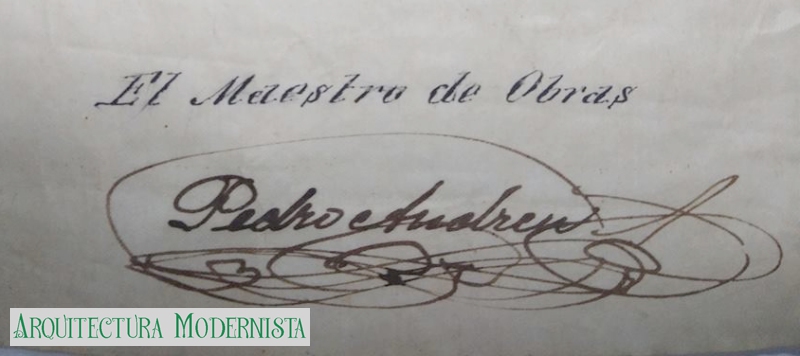 El Maestro de Obras
Pedro Andreu
ARQUITECTURA MODERNISTA